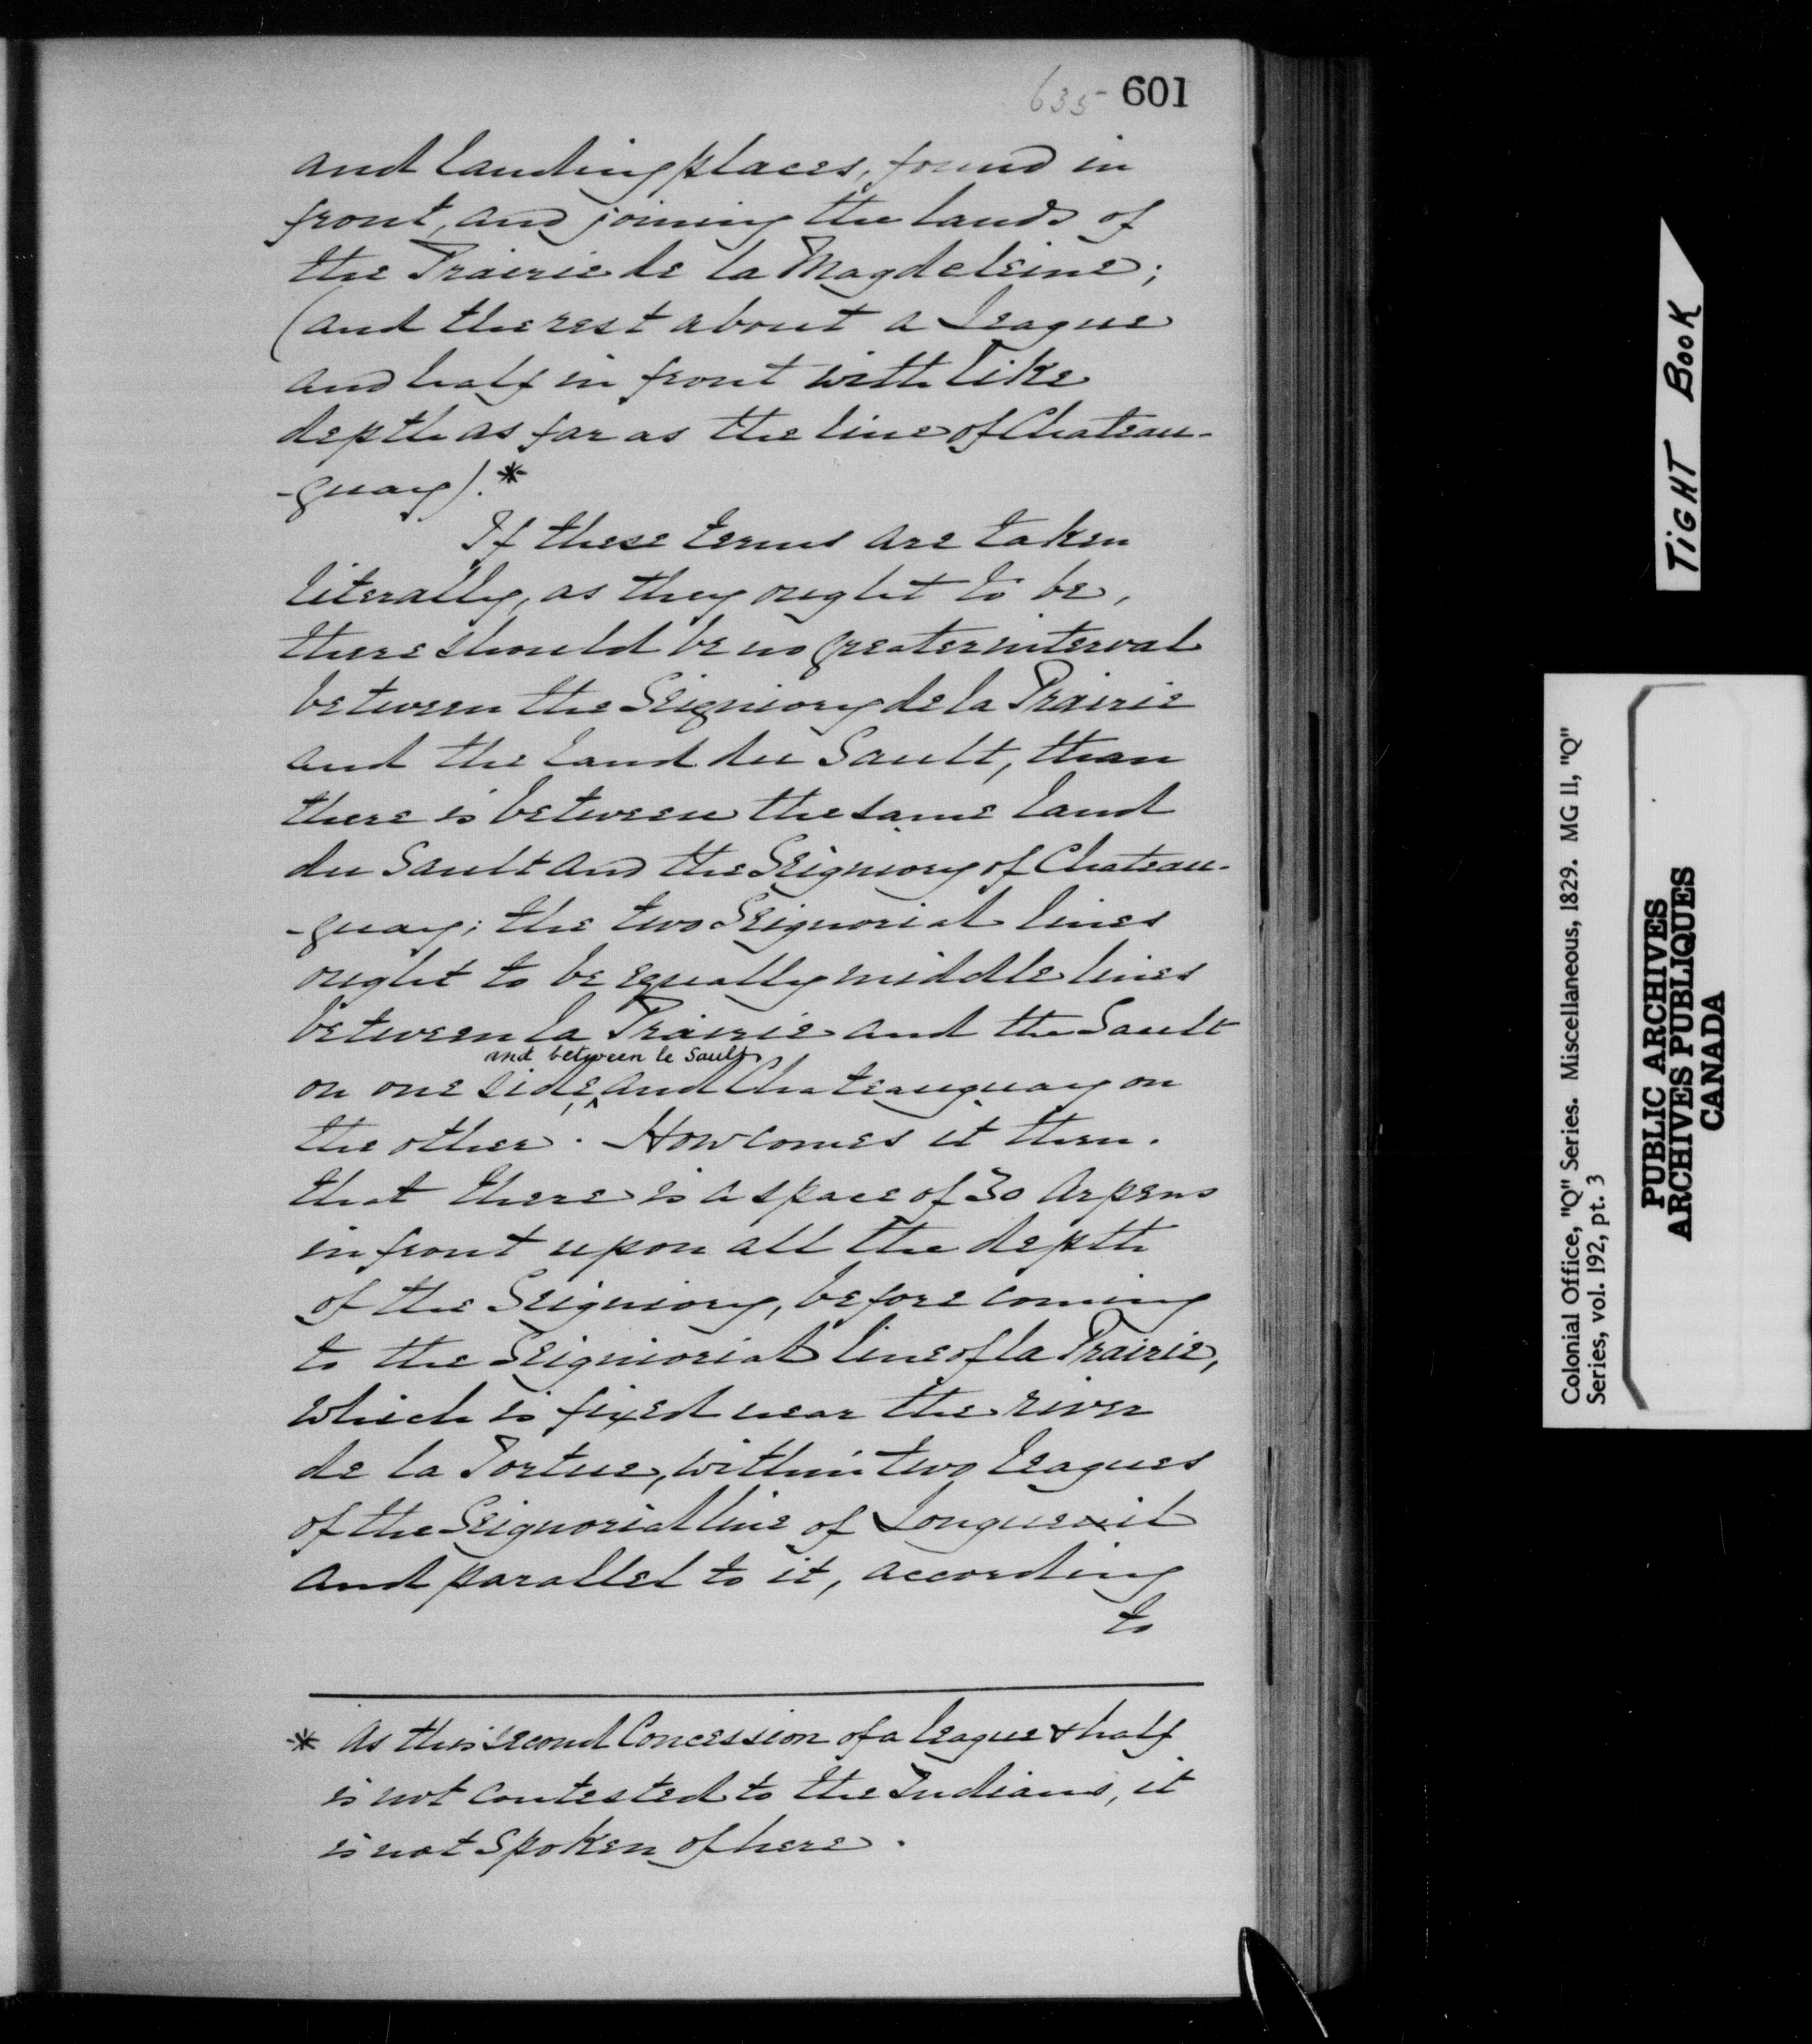 635 601
and landing places, found in
front, and joining the lands of
the Prairie de la Magdeleine;
(and the rest about a League
and half in front with like
depth as far as the line of Chateau-
-guay).*
If these terms are taken
literally, as they ought to be,
there should be no greater interval
between the Seigniory de la Prairie
and the land du Sault, than
there is between the same land
du Sault and the Seigniory of Chateau-
-guay; the two Seignorial lines
ought to be equally middle lines
between la Prairie and the Sault
and between le Sault
on one side, ^ and Chateauguay on
the other. How comes it then.
that there is a space of 30 Arpens
in front upon all the depth
of the Seigniory, before coming
to the Seigniorial line of la Prairie,
which is fixed near the river
de la Tortue, within two leagues
of the Seignorial line of Longueuil
and parallel to it, according
to
* As this second Concession of a league & half
is not contested to the Indians, it
is not spoken of here.
TIGHT BOOK
Colonial Office, "Q" Series. Miscellaneous, 1829. MG 11, "Q"
Series, vol. 192, pt. 3
PUBLIC ARCHIVES
ARCHIVES PUBLIQUES
CANADA